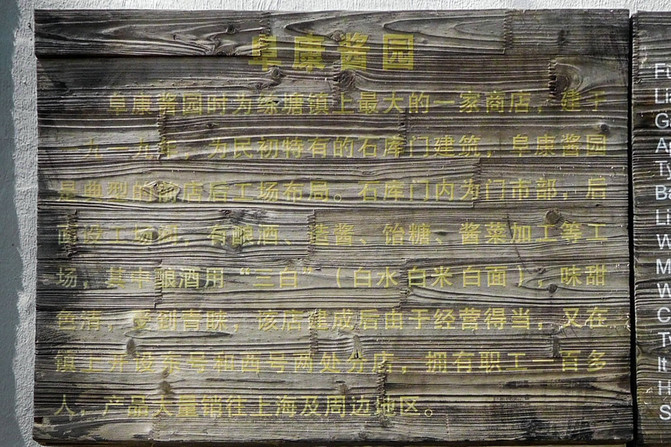 阜康酱园
阜康酱园时为练塘镇上最大的一家商店，建于
一九一九年，为民初特有的石库门建筑，阜康酱园
是典型的前店后工场布局。石库门内为门市部，后
面设工场间，有酿酒、造酱、饴糖、酱菜加工等工
场，其中酿酒用“三白”（白水白米白面），味甜
色清，受到青睐，该店建成后由于经营得当，又在
镇上开设东号和西号两处分店，拥有职工一百多
人，产品大量销往上海及周边地区。